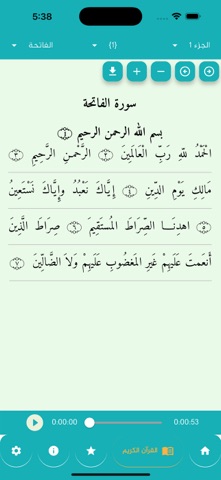 5:38
الجزء 1 (1) الفاتحة
سورة الفاتحة
بسم الله الرحمن الرحيم ﴿٤﴾
الْحَمْدُ للّهِ رَبِّ الْعَالَمِينَ ﴿٢﴾ الرَّحْمـنِ الرَّحِيمِ ﴿٣﴾
مَالِكِ يَوْمِ الدِّينِ ﴿٤﴾ إِيَّاكَ نَعْبُدُ وإِيَّاكَ نَسْتَعِينُ
﴿٥﴾ اهدِنَــا الصِّرَاطَ المُستَقِيمَ ﴿٦﴾ صِرَاطَ الَّذِينَ
أَنعَمتَ عَلَيهِمْ غَيرِ المَغضُوبِ عَلَيهِمْ وَلاَ الضَّالِّينَ ﴿٧﴾
0:00:00 0:00:53
القرآن الكريم